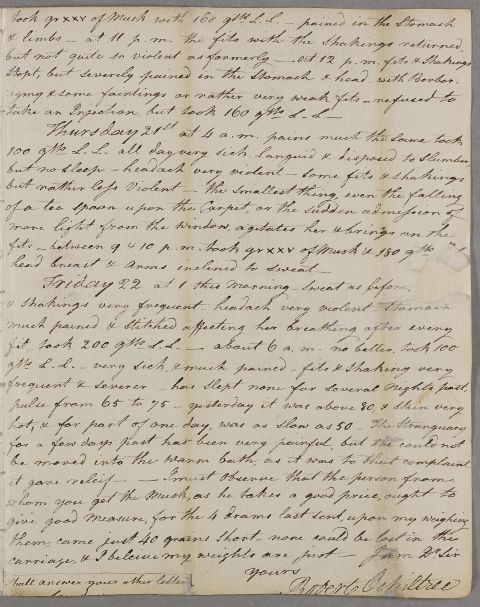 took gr XXV of Musk with 160 gtts L.L. – pained in the Stomach
& limbs – at 11 p.m. the fits with the Shakings returned
but not quite so violent as formerly – at 12 p.m. fits & Shakings
Stopt, but severely pained in the Stomach & head with Borbor:
izmy & some faintings or rather very weak fits – refused to
take an Injection, but took 160 gtts L.L. –
Thursday 21st at 4 a.m. pains much the same took
100 gtts L.L. all day very sick, Languid & disposed to Slumber
but no sleep – headach very violent – some fits & shakings
but rather less violent – the smallest thing, even the falling
of a tea spoon upon the Carpet, or the sudden admission of
more light from the window, agitates her & brings on the
fits – between 9 & 10 p.m. took gr XXV of Musk & 180 gtts
head breast & Arms inclined to sweat –
Friday 22 at 1 this morning – sweat as before,
& shakings very frequent – headach very violent – Stomach
much pained & stitched affecting her breathing after every
fit took 200 gtts L.L. – about 6 a.m. no better, took 100
gtts L.L. – very sick, & much pained – fits & Shaking very
frequent & severe – has slept none for several nights past,
pulse from 65 to 75 – yesterday it was above 80, & skin very
hot, & for part of one day, was as slow as 50 – The Stranguary
for a few days past has been very painful, but she could not
be moved into the warm bath, as it was to that complaint
it gave releif – – I must observe that the person from
whom you get the Musk, as he takes a good price, ought to
give good measure, for the 4 drams last sent, upon my weighing
them, came just 40 grains short none could be lost in the
carriage, & I beleive my weights are just – I am Dr Sir
Yours
shall answer your other letter
Robert Ochiltree